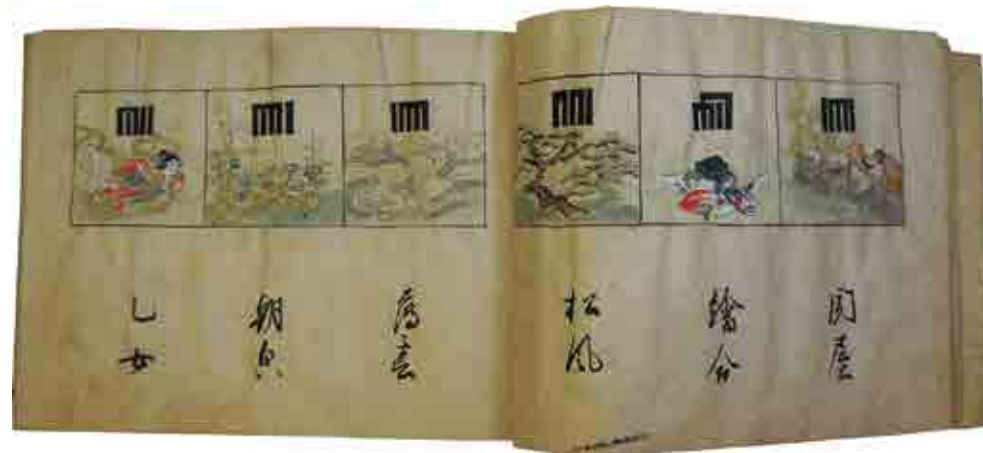 関屋
繪合
松風
薄雲
朝皃
乙女